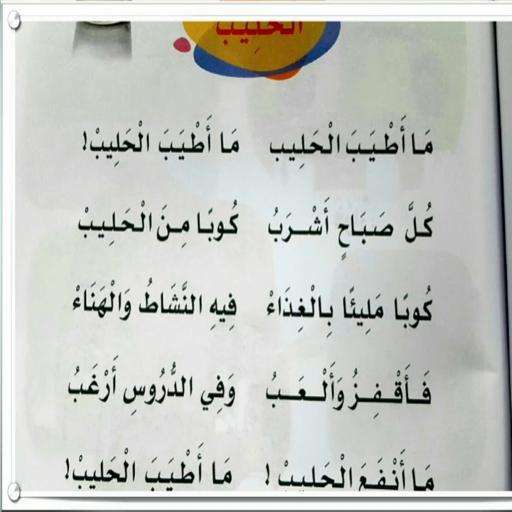 الحليب
مَا أَطْيَبَ الْحَلِيب مَا أَطْيَبَ الْحَلِيبْ!
كُلَّ صَبَاحٍ أَشْرَبُ كُوبًا مِنَ الْحَلِيبْ
كُوبًا مَلِيئًا بِالْغِذَاءْ فِيهِ النَّشَاطُ وَالْهَنَاءْ
فَأَقْفِزُ وَأَلْعَبُ وَفِي الدُّرُوسِ أَرْغَبُ
مَا أَنْفَعَ الْحَلِيبْ! مَا أَطْيَبَ الْحَلِيبْ!